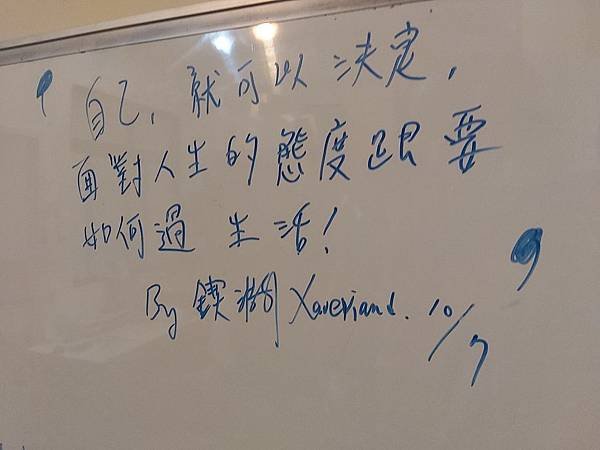 自己，就可以決定，
面對人生的態度跟要
如何過生活！
By 鍥湖 Xaverians. 10/7